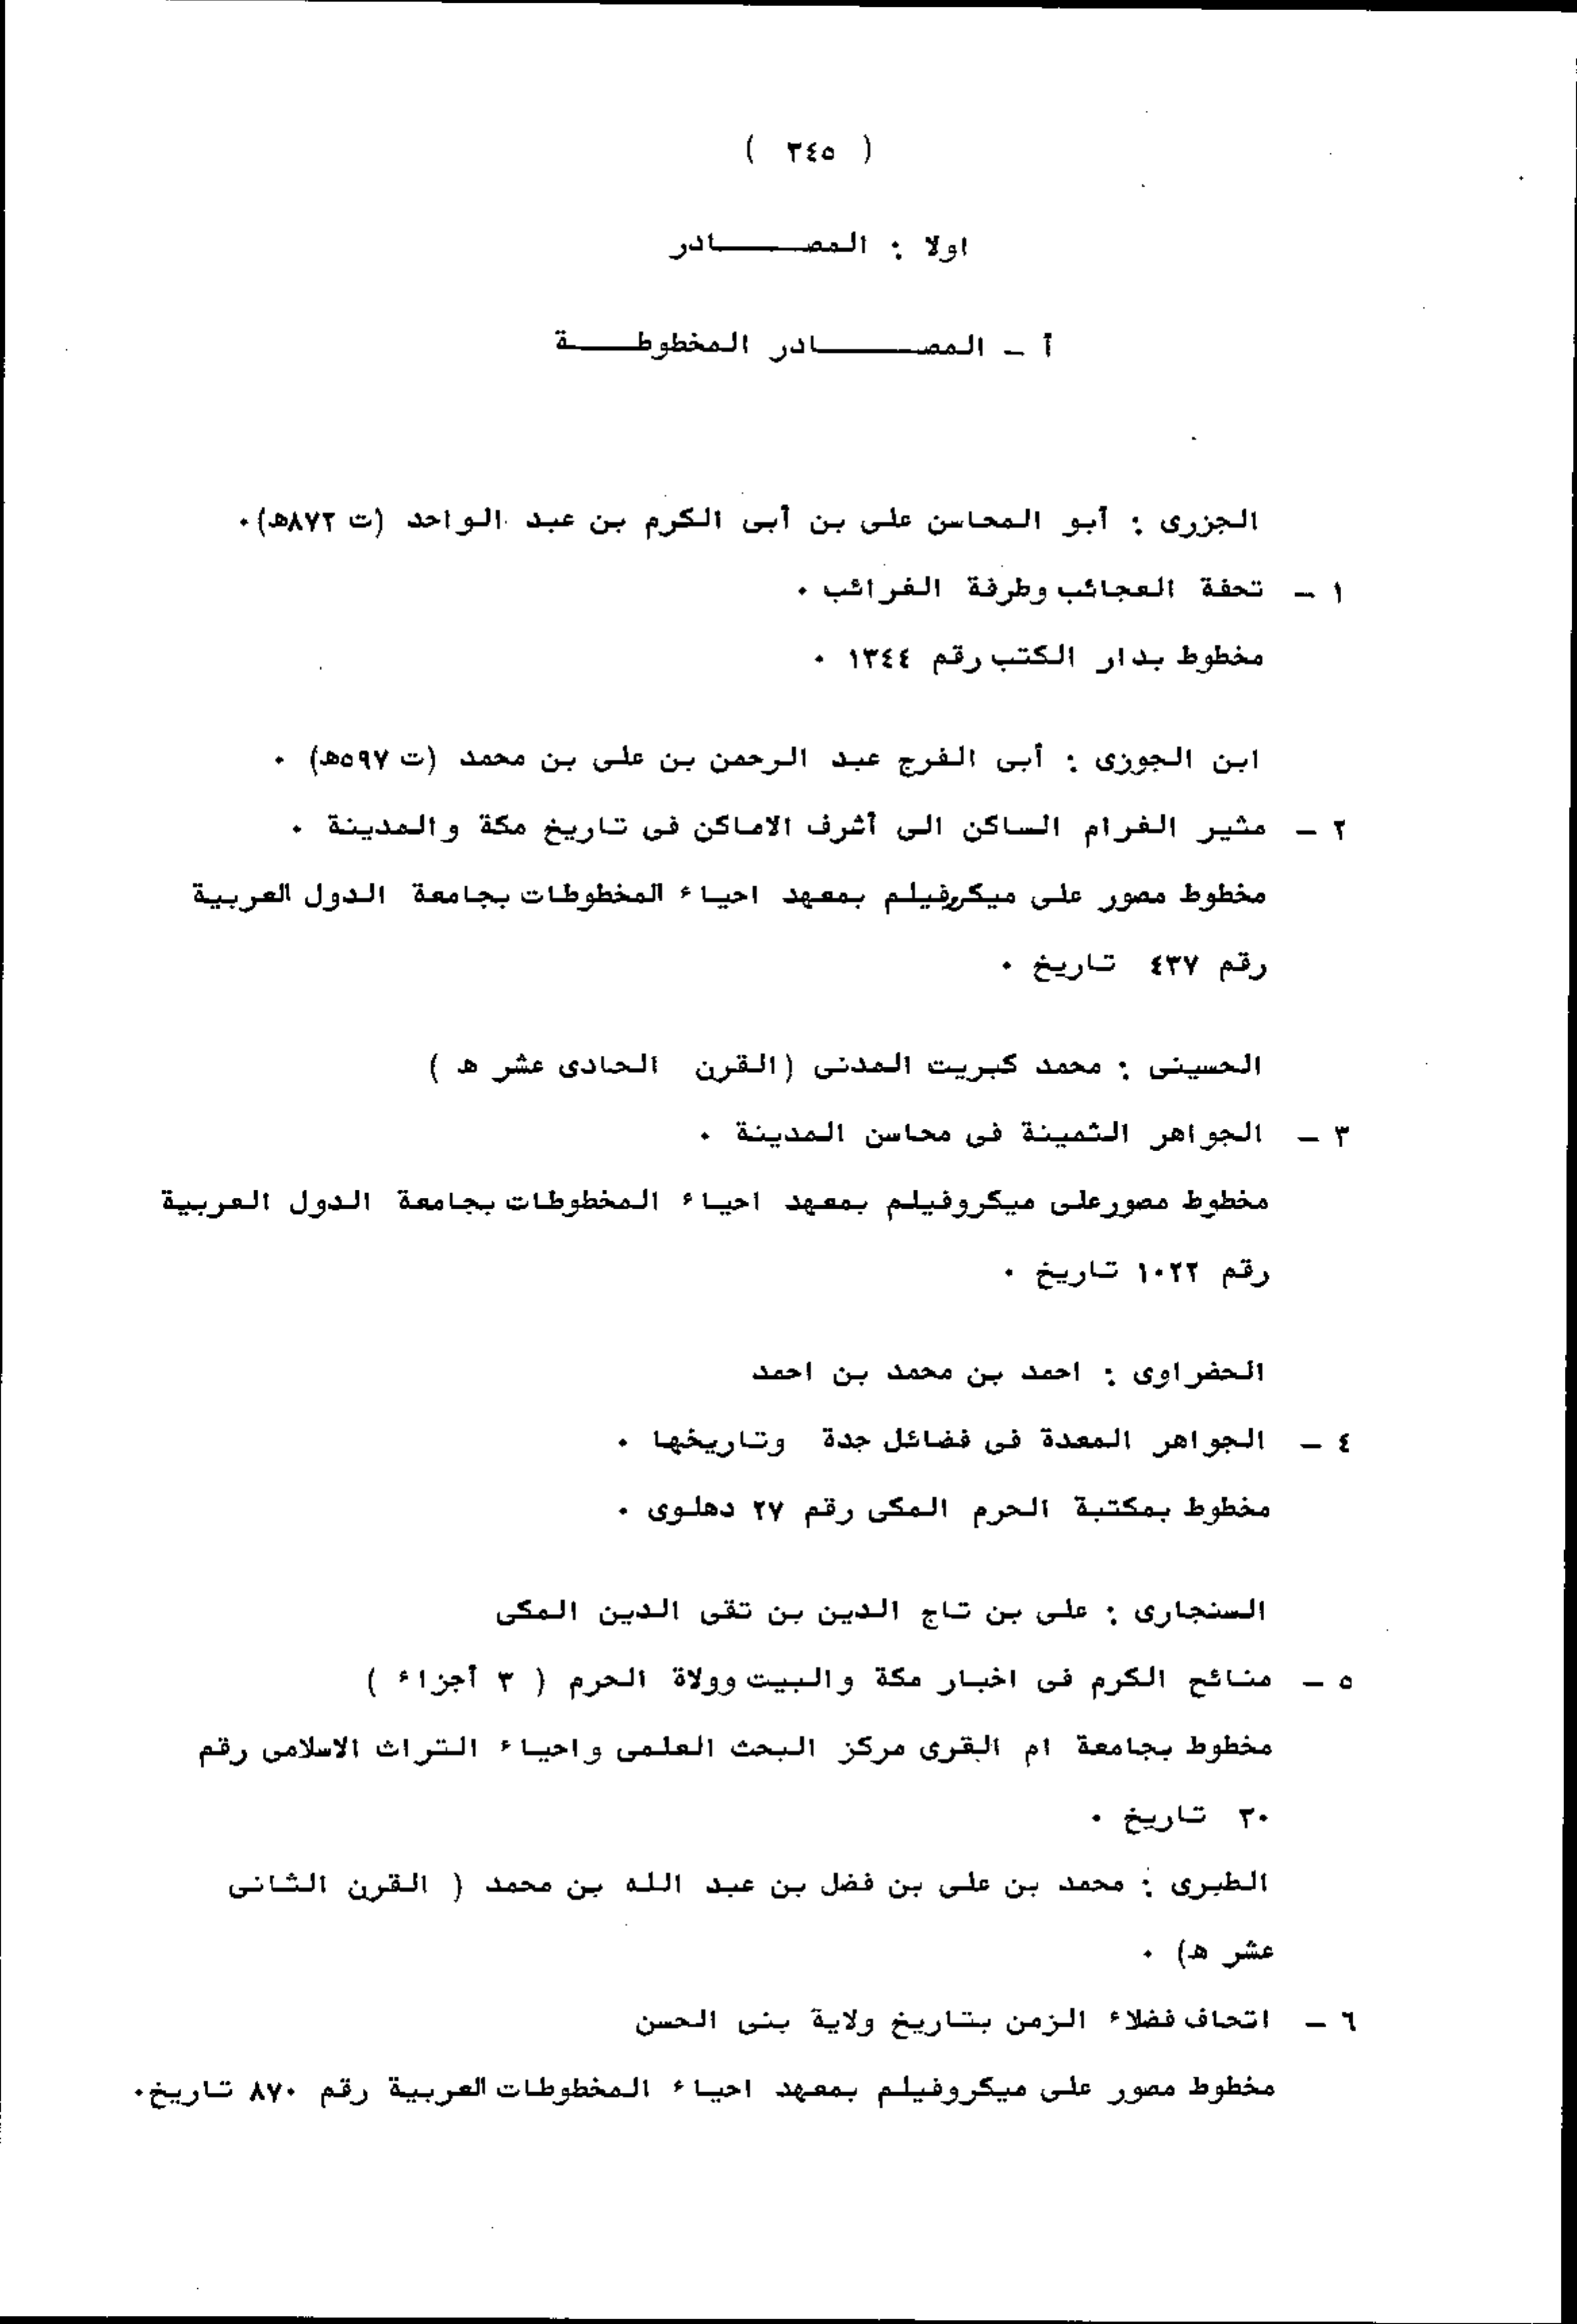 ( ٣٤٥ )
اولا : المصـــــــادر
أ - المصـــــــادر المخطوطـــــة
الجزرى : أبو المحاسن على بن أبى الكرم بن عبد الواحد (ت ٨٧٢ھ)٠
١ - تحفة العجائب وطرفة الغرائب ٠
مخطوط بدار الكتب رقم ١٣٤٤ ٠
ابن الجوزى : أبى الفرج عبد الرحمن بن على بن محمد (ت ٥٩٧ھ) ٠
٢ - مثير الغرام الساكن الى أشرف الاماكن فى تاريخ مكة والمدينة ٠
مخطوط مصور على ميكروفيلم بمعهد احياء المخطوطات بجامعة الدول العربية
رقم ٤٣٧ تاريخ ٠
الحسينى : محمد كبريت المدنى (القرن الحادى عشر ھ )
٣ - الجواهر الثمينة فى محاسن المدينة ٠
مخطوط مصورعلى ميكروفيلم بمعهد احياء المخطوطات بجامعة الدول العربية
رقم ١٠٢٢ تاريخ ٠
الحضراوى : احمد بن محمد بن احمد
٤ - الجواهر المعدة فى فضائل جدة وتاريخها ٠
مخطوط بمكتبة الحرم المكى رقم ٢٧ دهلوى ٠
السنجارى : على بن تاج الدين بن تقى الدين المكى
٥ - منائح الكرم فى اخبار مكة والبيت وولاة الحرم ( ٣ أجزاء )
مخطوط بجامعة ام القرى مركز البحث العلمى واحياء التراث الاسلامى رقم
٣٠ تاريخ ٠
الطبرى : محمد بن على بن فضل بن عبد الله بن محمد ( القرن الثانى
عشر ھ) ٠
٦ - اتحاف فضلاء الزمن بتاريخ ولاية بنى الحسن
مخطوط مصور على ميكروفيلم بمعهد احياء المخطوطات العربية رقم ٨٧٠ تاريخ٠